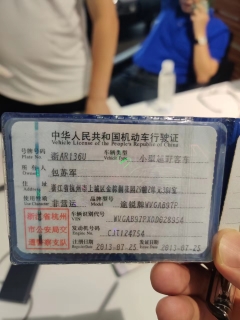 中华人民共和国机动车行驶证
Vehicle License of the People's Republic of China
号牌号码 浙AR136U 车辆类型 小型越野客车
Plate No. Vehicle Type
所有人 包苏军
Owner
住址 浙江省杭州市上城区
Address
使用性质 非营运 品牌型号 途锐牌WVGAB97P
Use Character Model
浙江省杭州 车辆识别代号
市公安局交 VIN
通警察支队 发动机号码 CJT124754
Engine No.
注册日期 2013-07-25 发证日期 2013-07-25
Register Date Issue Date